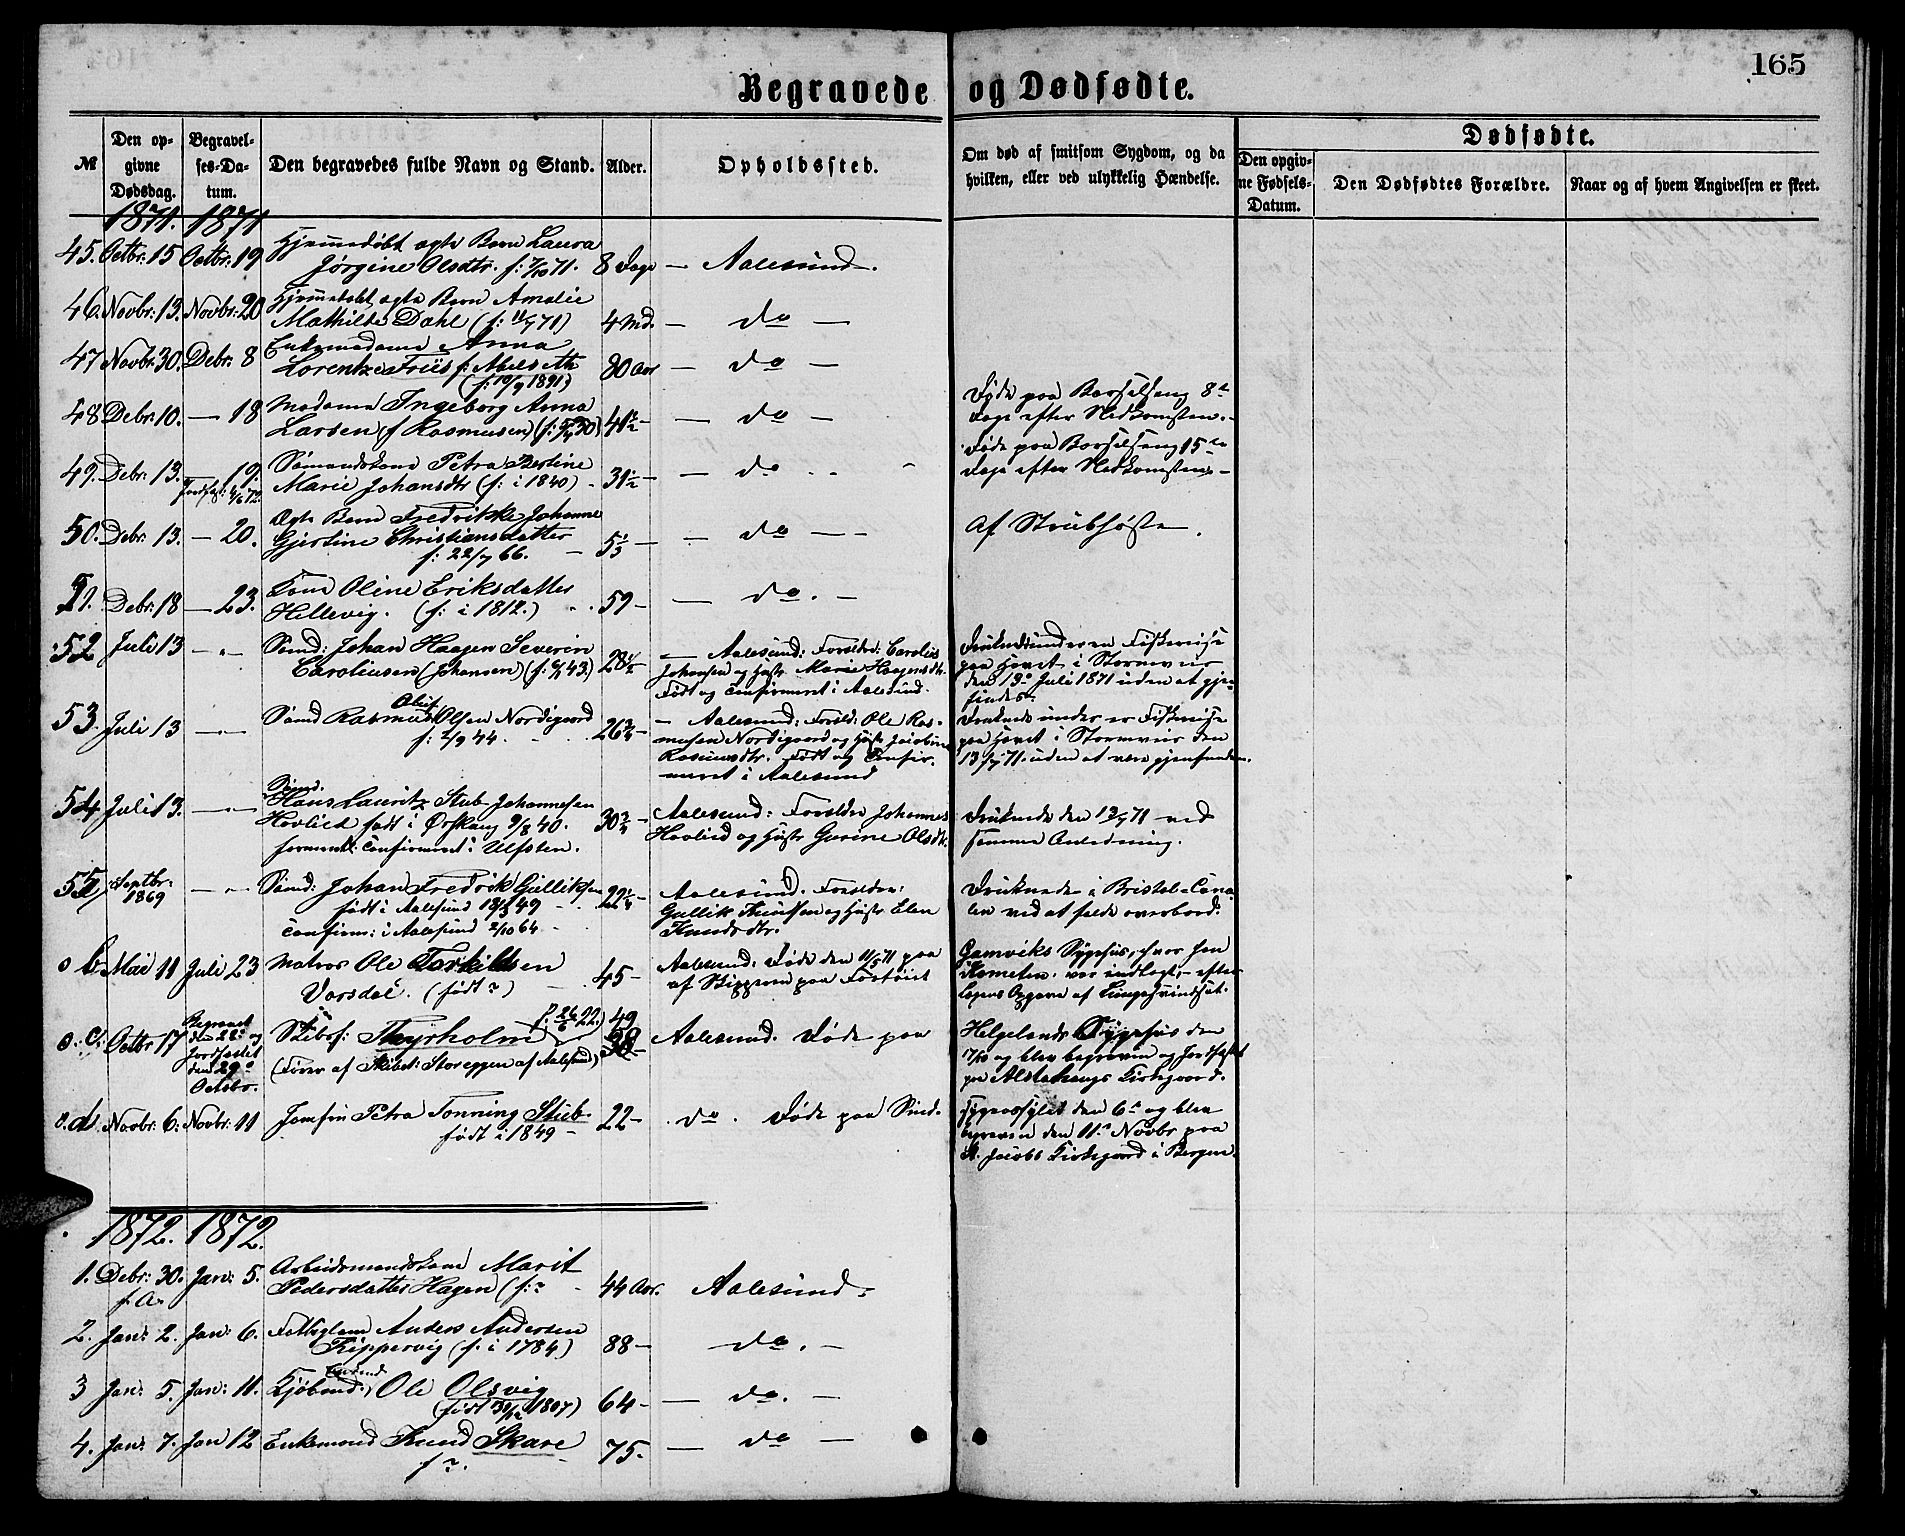 165
Begravede og Dødfødte.
№
Den opgivne Dødsdag.
Begravelses-Datum.
Den begravedes fulde Navn og Stand.
Alder.
Opholdssted.
Om død af smitsom Sygdom, og da hvilken, eller ved ulykkelig Hændelse.
Dødfødte.
Den opgivne Fødsels-Datum.
Den Dødfødtes Forældre.
Naar og af hvem Angivelsen er skeet.
1871. 1871
45. Octbr: 15 Octbr: 19 Hjemmedøbt ægte Barn Laura
Jørgine Olsdtr. f: 7/10 71. 8 Dage — Aalesund.
46. Novbr: 13. Novbr: 20 Hjemmedøbt ægte Barn Amalie
Mathilde Dahl (f: 11/7 71) 4 Md. — do —
47 Novbr. 30. Debr: 8 Enkemadame Anna
Lorentze Friis f: Abelseth 80 Aar — do —
(f: 19/9 1891)
48 Debr: 10. — 18 Madame Ingeborg Anna
Larsen (f Rasmusen) (f: 5/4 30) 41½ — do —
Døde paa Barselseng 8de
Dage efter Nedkomsten.
49. Debr: 13. — 19. Sømandskone Petra Bertine
Marie Johansdtr (f: i 1840) 31½ — do
Døde paa Barselseng 15de
Dage efter Nedkomsten.
50. Debr. 13. — 20. Ægte Barn Fredrikke Johanne
Gjertine Christiansdatter 5⅓ — do —
f: 22/7 66.
Af Strubehoste.
51. Debr: 18 — 23. Kone Oline Eriksdatter
Hellevig. (f: i 1812.) 59 — do. —
52 Juli 13 — " — Sømd: Johan Haagen Severin
Caroliusen (Johansen) 28½
— Aalesund: Forældre: Carolius
Johansen og Hustr Marie Haagensdtr.
Født og Confirmeret i Aalesund.
Druknede under en Fiskereise
paa Havet i Stormveir
den 13de Juli 1871 uden at gjen-
findes.
53. Juli 13 — " — Sømd Rasmus Oluf Olsen Nordigaard
f: 2/9 44. 26¾
— Aalesund: Foræld: Ole Ras-
musen Nordigaard og Hustr Jacobine
Rasmusdtr. Født og Confir-
meret i Aalesund
Druknede under en Fiskereise
paa Havet i Stormveir den
13/7 71. uden at være gjenfunden.
54 Juli 13. — " — Sømd.
Hans Lauritz Stub Johannesen
Hovlied født i Ørskoug 9/8 40. 30¾
Confirmeret i Ulfsten.
Aalesund: Forældre Johannes
Hovlied og Hustr Gurine Olsdtr.
Druknede den 13/7 71 ved
samme Anledning.
55 Septbr: 1869 — " — Sømd: Johan Fredrik Gulliksen
født i Aalesund 18/3 49 22¼
Confirm: i Aalesund 2/10 64.
Aalesund. Forældre:
Gullik Knutsen og Hustr Elen
Knudsdtr.
Druknede i Bristol-Cana-
len ved at falde overbord.
o b. Mai 11 Juli 23 Matros Ole Torkildsen
Vorsdal. (født ?) 45 —
Aalesund: Døde den 11/5 71 paa
af Skipperen paa Fartøiet
Gamviks Sygehus, hvor han
Kometen. var indlagt, — efter
Lægens Opgave af Lungesvindsot.
o. c. Octbr 17 Begravet
den 22de og
Jordfæstet
den 29de
Octobr.
Skibsf: Thyrholm f: 26/6 22.) 49
(Fører af Skibet: Storeggen af Aalesund)
Aalesund. Døde paa
Helgelands Sygehus den
17/10 og blev begraven og Jordfæstet
paa Alstahaugs Kirkegaard.
o. d. Novbr: 6. Novbr: 11 Jomfru Petra Tonning Stub
født i 1849 — 22 — do. Døde paa Sind-
sygeasylet den 6te og blev
begraven den 11te Novbr paa
St. Jacobs Kirkegaard i Bergen.
1872. 1872.
1. Debr: 30. f. A. Jan: 5. Arbeidsmandskone Marit
Pedersdatter Hagen (f: ? 44 Aar. Aalesund.
2. Jan: 2. Jan: 6. Fattiglem Anders Andersen
Kippervig (f: i 1784) 88 — do. —
3 Jan: 5. Jan: 11. Kjøbmd: Ole Olsvig
(født 1807) 64 — do. —
4. Jan: 7. Jan 12 Enkemand Knud Skare
f ?. 75. — do —